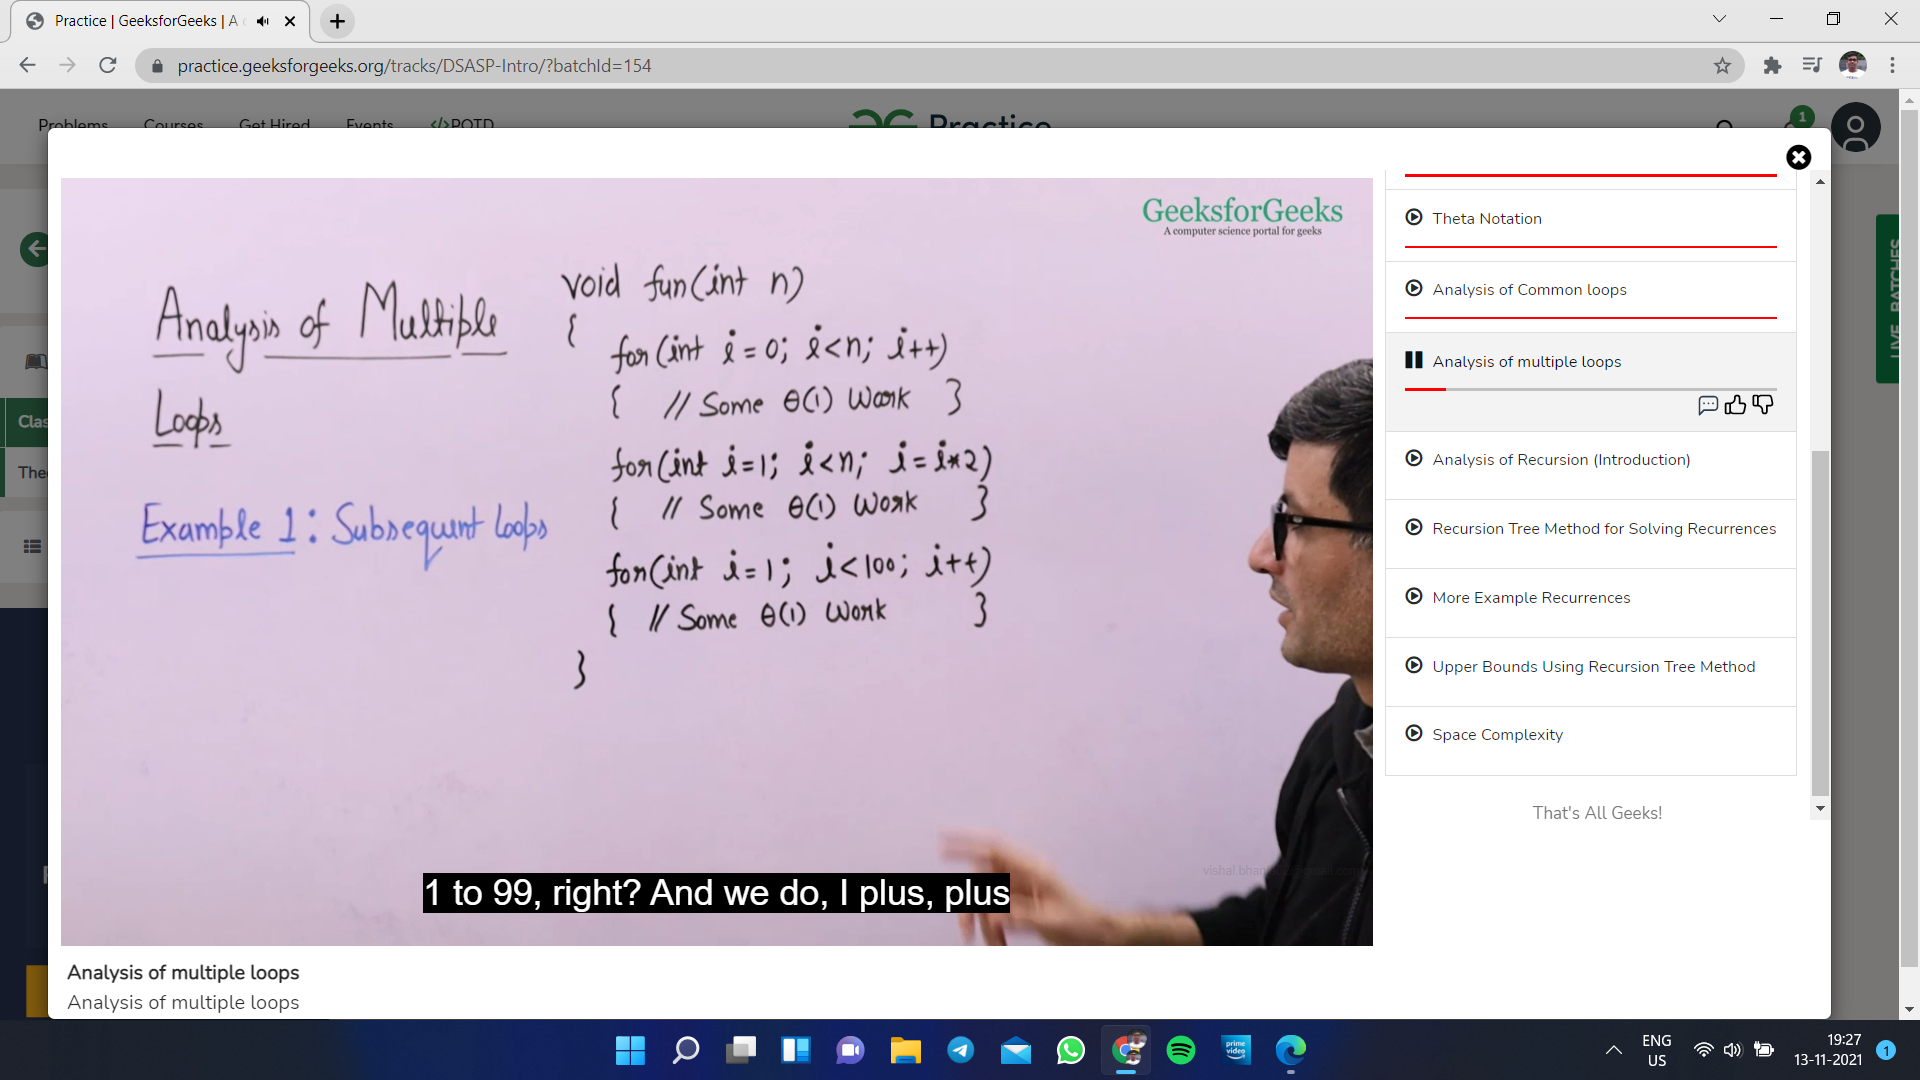 Practice | GeeksforGeeks | A
practice.geeksforgeeks.org/tracks/DSASP-Intro/?batchId=154
Problems Courses Get Hired Events </>POTD Practice
1
GeeksforGeeks
A computer science portal for geeks
Analysis of Multiple
Loops
Example 1: Subsequent Loops
void fun(int n)
{
for(int i = 0; i<n; i++)
{ // Some θ(1) Work }
for(int i=1; i<n; i=i*2)
{ // Some θ(1) Work }
for(int i=1; i<100; i++)
{ // Some θ(1) Work }
}
1 to 99, right? And we do, I plus, plus
Analysis of multiple loops
Analysis of multiple loops
Theta Notation
Analysis of Common loops
Analysis of multiple loops
Analysis of Recursion (Introduction)
Recursion Tree Method for Solving Recurrences
More Example Recurrences
Upper Bounds Using Recursion Tree Method
Space Complexity
That's All Geeks!
LIVE BATCHES
Clas
The
prime video
ENG
US
19:27
13-11-2021
1